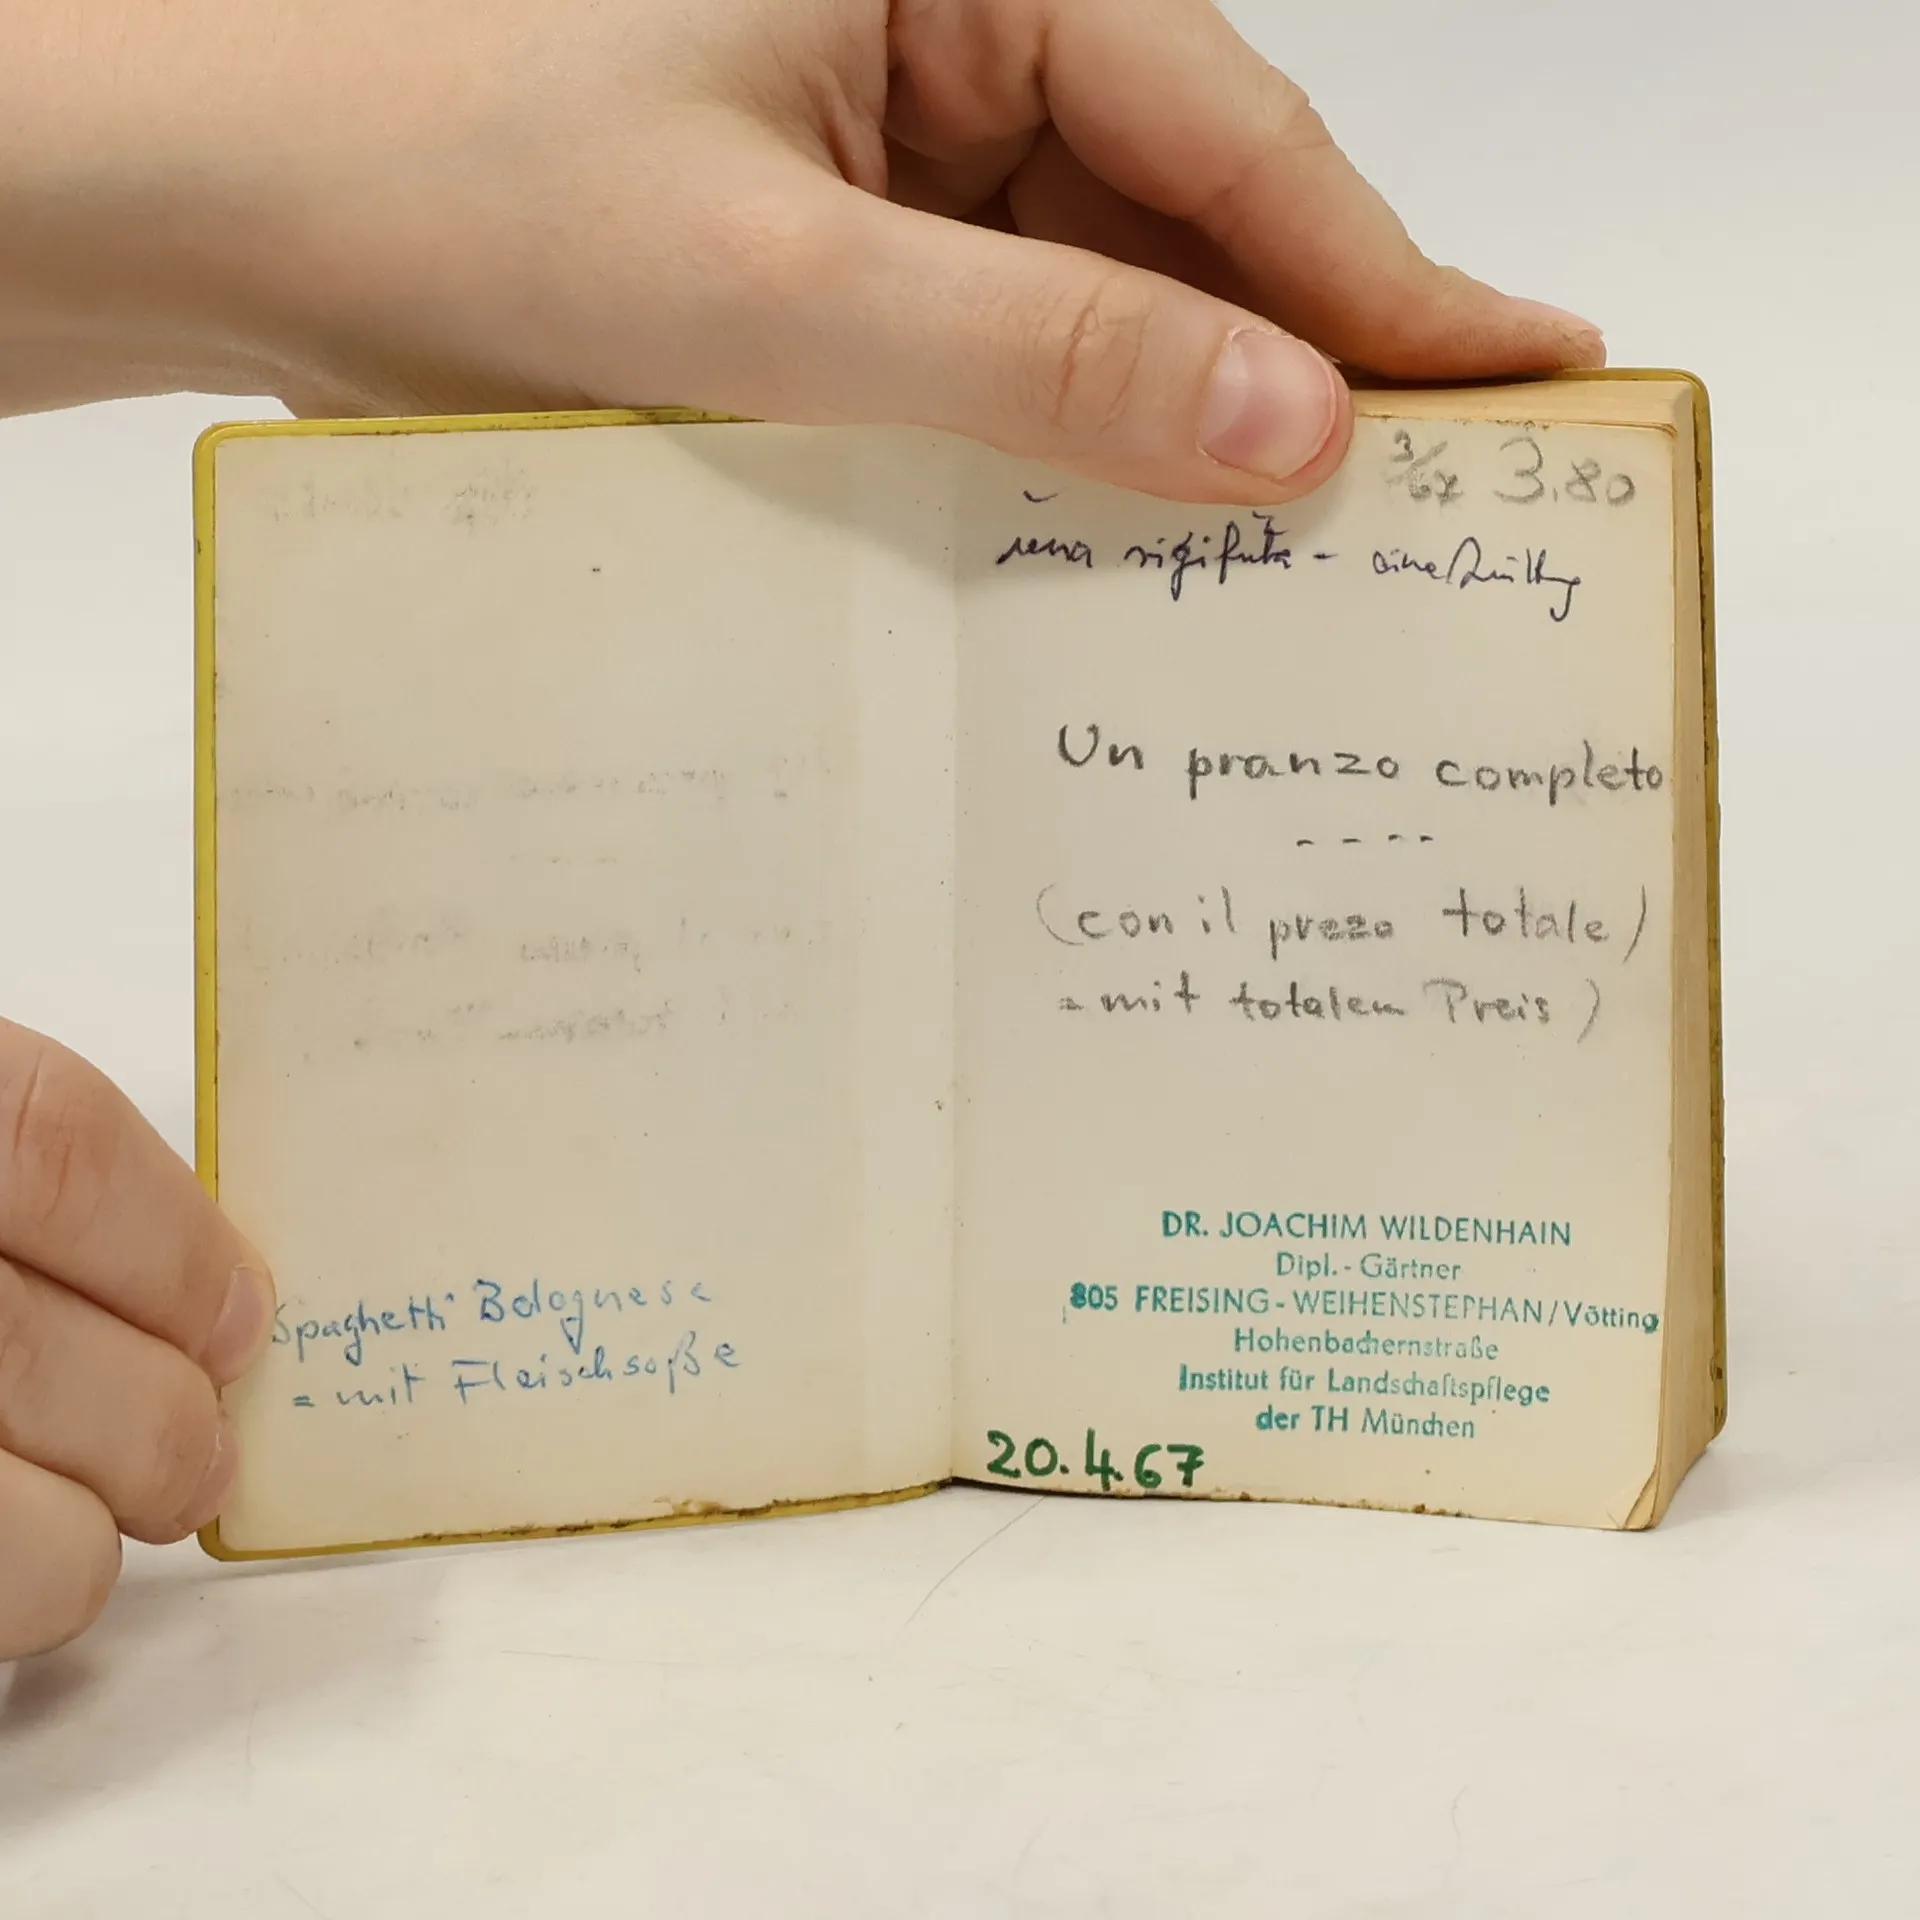 Spaghetti Bolognese
= mit Fleischsoße
3.80
una - eine
Un pranzo completo
- - - -
(con il prezo totale)
= mit totalem Preis)
DR. JOACHIM WILDENHAIN
Dipl.-Gärtner
805 FREISING-WEIHENSTEPHAN/Vötting
Hohenbachernstraße
Institut für Landschaftspflege
der TH München
20.4.67